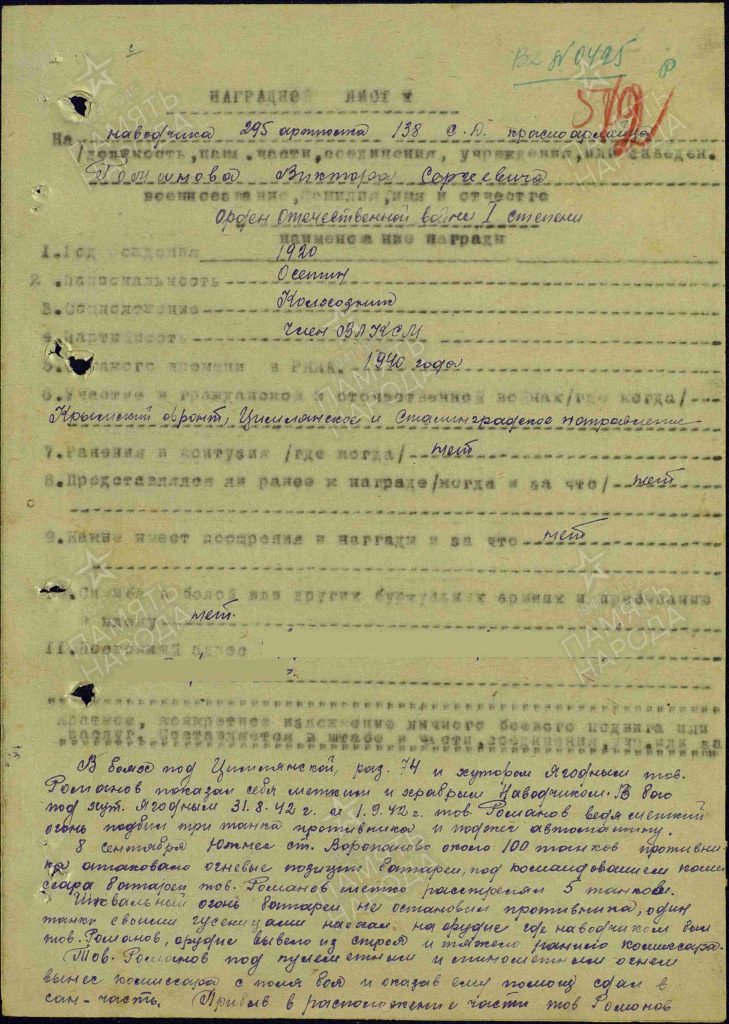 В2 № 0495
512
НАГРАДНОЙ ЛИСТ
На наводчика 295 артполка 138 с.д. красноармейца
/должность, наим. части, соединения, учреждения, или заведен.
Романова Виктора Сергеевича
военное звание, фамилия, имя и отчество
Орден Отечественной войны I степени
наименование награды
1. Год рождения 1920
2. Национальность Осетин
3. Соцположение Колхозник
4. Партийность Член ВЛКСМ
5. С какого времени в РККА. 1940 года
6. Участие в гражданской и отечественной войнах/где когда/
Крымский фронт, Цимлянское и Сталинградское направление
7. Ранения и контузия /где когда/ нет
8. Представлялся ли ранее к награде/когда и за что/ нет
9. Какие имеет поощрения и награды и за что нет
Служба в белой или других буржуазных армиях и пребывание
в плену нет.
11. Постоянный адрес
Краткое, конкретное изложение личного боевого подвига или
заслуг. Составляется в штабе части, соединения,
В боях под Цимлянской, раз. 74 и хутором Ягодным тов.
Романов показал себя метким и храбрым Наводчиком. В бою
под хут. Ягодным 31.8.42 г. и 1.9.42 г. тов. Романов ведя меткий
огонь подбил три танка противника и поджег автомашину.
8 сентября Южнее ст. Воропаново около 100 танков противни
ка атаковало огневые позиции батареи, под командованием комис
сара батареи тов. Романов метко расстрелял 5 танков.
Шквальный огонь батареи не остановил противника, один
танк своими гусеницами наехал на орудие где наводчиком был
тов. Романов, орудие вывело из строя и тяжело ранило комиссара.
Тов. Романов под пулеметным и минометным огнем
вынес комиссара с поля боя и оказав ему помощь сдал в
сан-часть. Прибыв в расположение части тов Романов
ПАМЯТЬ НАРОДА